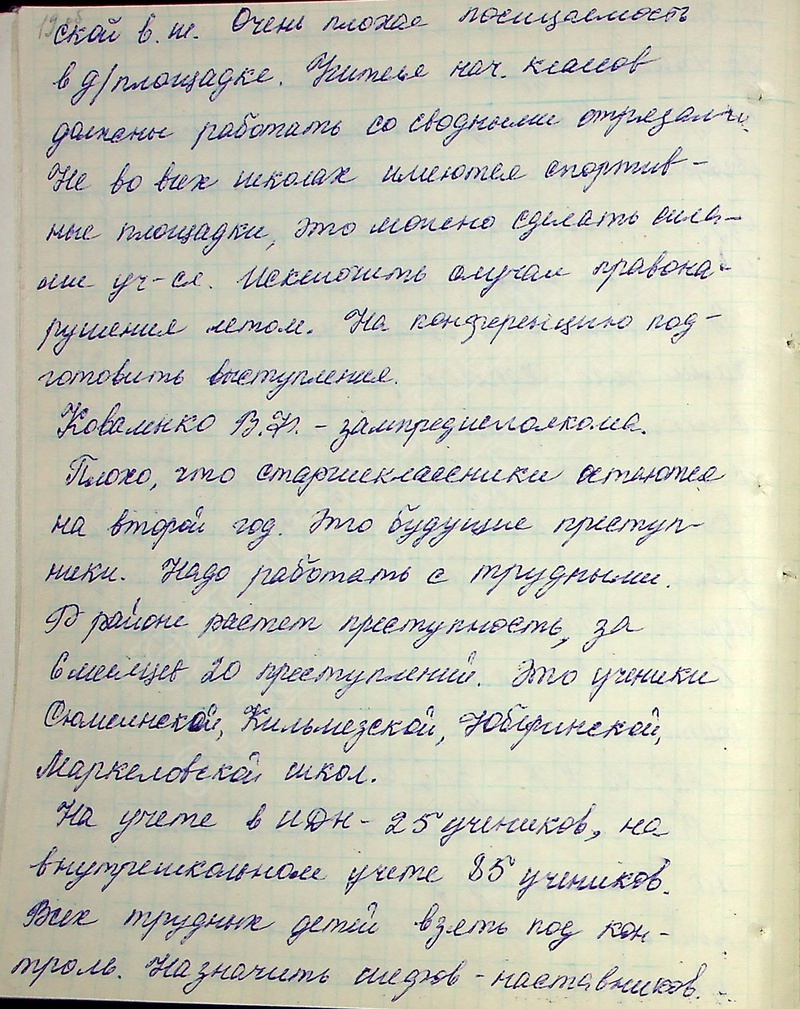 ской в.ш. Очень плохая посищаемость
в д/площадке. Учителя нач. классов
должны работать со сводными отрядами.
Не во всех школах имеются спортив-
ные площадки, это можно сделать сила-
ми уч-ся. Исключить случаи правона-
рушения летом. На конференцию под-
готовить выступления.
Коваленко В.Ф. - зампредисполкома.
Плохо, что старшеклассники остаются
на второй год. Это будущие преступ-
ники. Надо работать с трудными.
В районе растет преступность, за
6 месяцев 20 преступлений. Это ученики
Сюмсинской, Кильмезской, Юбиринской,
Маркеловской школ.
На учете в ИДН - 25 учеников, на
внутришкольном учете 85 учеников.
Всех трудных детей взять под кон-
троль. Назначить шефов - наставников.